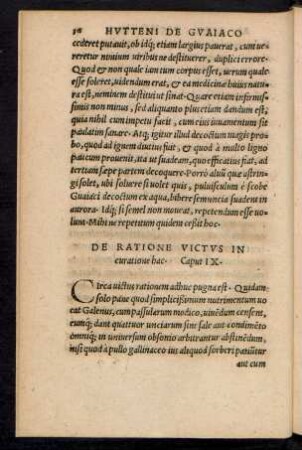 HVTTENI DE GVAIACO
cederet putauit, ob idq; etiam largius pauerat, cum ue=
reretur nouium uiribus ne destitueret, duplici errore.
Quod & non quale iam tum corpus esset, uerum quale
esse soleret, uidendum erat, & ea medicinæ huius natu=
ra est, neminem destituit ut sinat. Quare etiam infirmis=
simis non minus, sed aliquanto plus etiam dandum est,
quia nihil cum impetu facit, cum eius iuuamentum sit
paulatim sanare. Atq; igitur illud decoctum magis pro=
bo, quod ad ignem diutius fuit, & quod à multo ligno
pauci prouenit, ita ut suadeam, quo efficatius fiat, ad
tertiam sæpe partem decoquere. Porrò aluū quæ astrin=
gi solet, ubi soluere si uolet quis, puluisculum è scobe
Guaiaci decoctum ex aqua, bibere semuncia suadent in
aurora. Idq; si semel non moueat, repetendum esse uo=
lunt. Mihi ne repetetum quidem erfsit hoc.
DE RATIONE VICTVS IN
curatione hac. Caput IX.
Circa uictus rationem adhuc pugna est. Quidam
solo pane quod simplicissimum nutrimentum uo
cat Galenus, cum passularum modico, uiuēdum censent,
eumq; dant quattuor unciarum sine sale aut condimēto
omniq; in uniuersum obsonio arbitrantur abstinēdum,
nisi quod à pullo gallinaceo ius aliquod sorberi patiūtur
aut cum